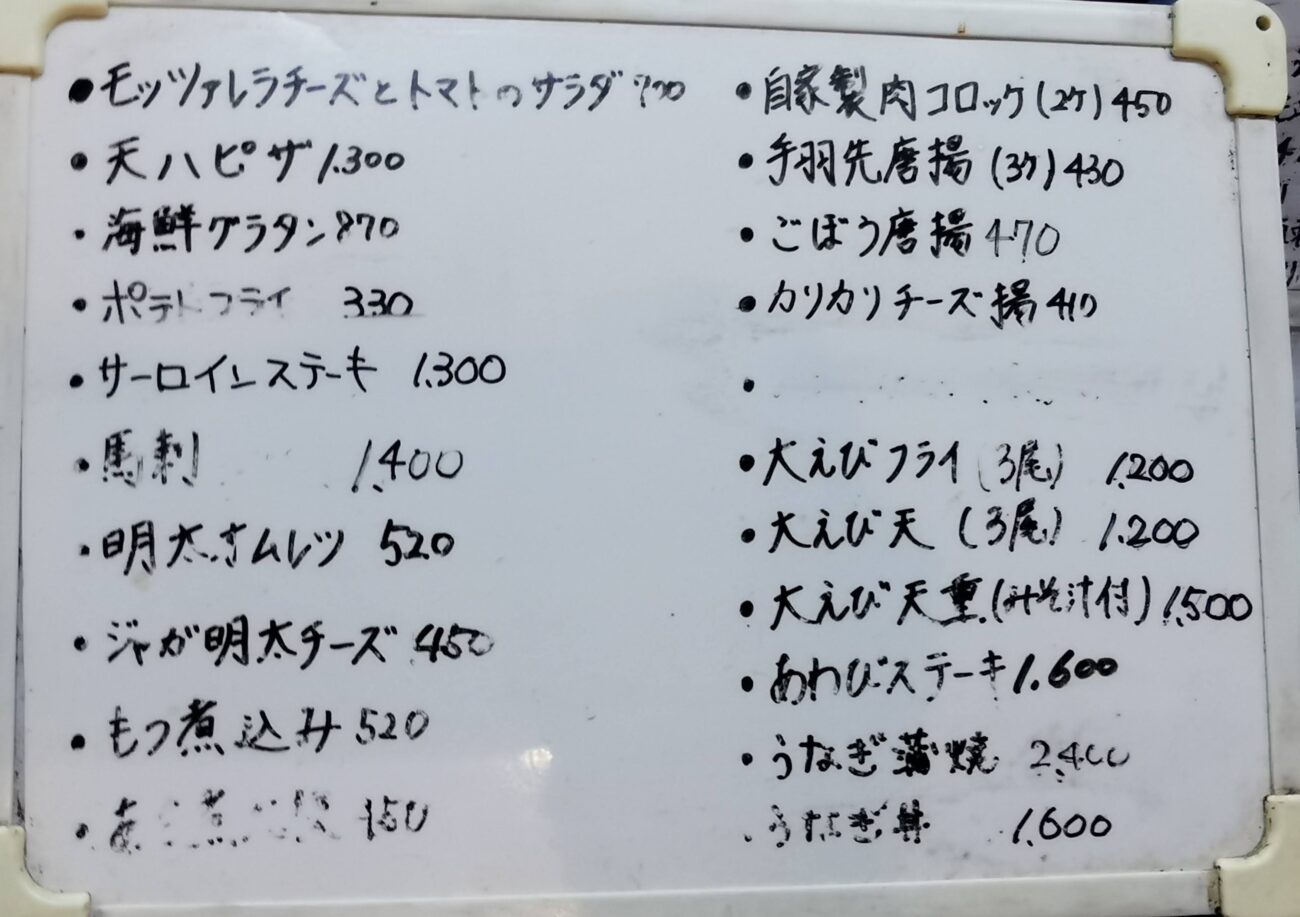 ・モッツァレラチーズとトマトのサラダ
・天ハピザ 1.300
・海鮮グラタン 870
・ポテトフライ 330
・サーロインステーキ 1.300
・馬刺 1.400
・明太オムレツ 520
・ジャが明太チーズ 450
・もつ煮込み 520
・自家製肉コロッケ(2ケ) 450
・手羽先唐揚(3ケ) 430
・ごぼう唐揚 470
・カリカリチーズ揚 410
・
・大えびフライ(3尾) 1.200
・大えび天(3尾) 1.200
・大えび天重(みそ汁付) 1.500
・あわびステーキ 1.600
・うなぎ蒲焼 2.400
・うなぎ丼 1.600